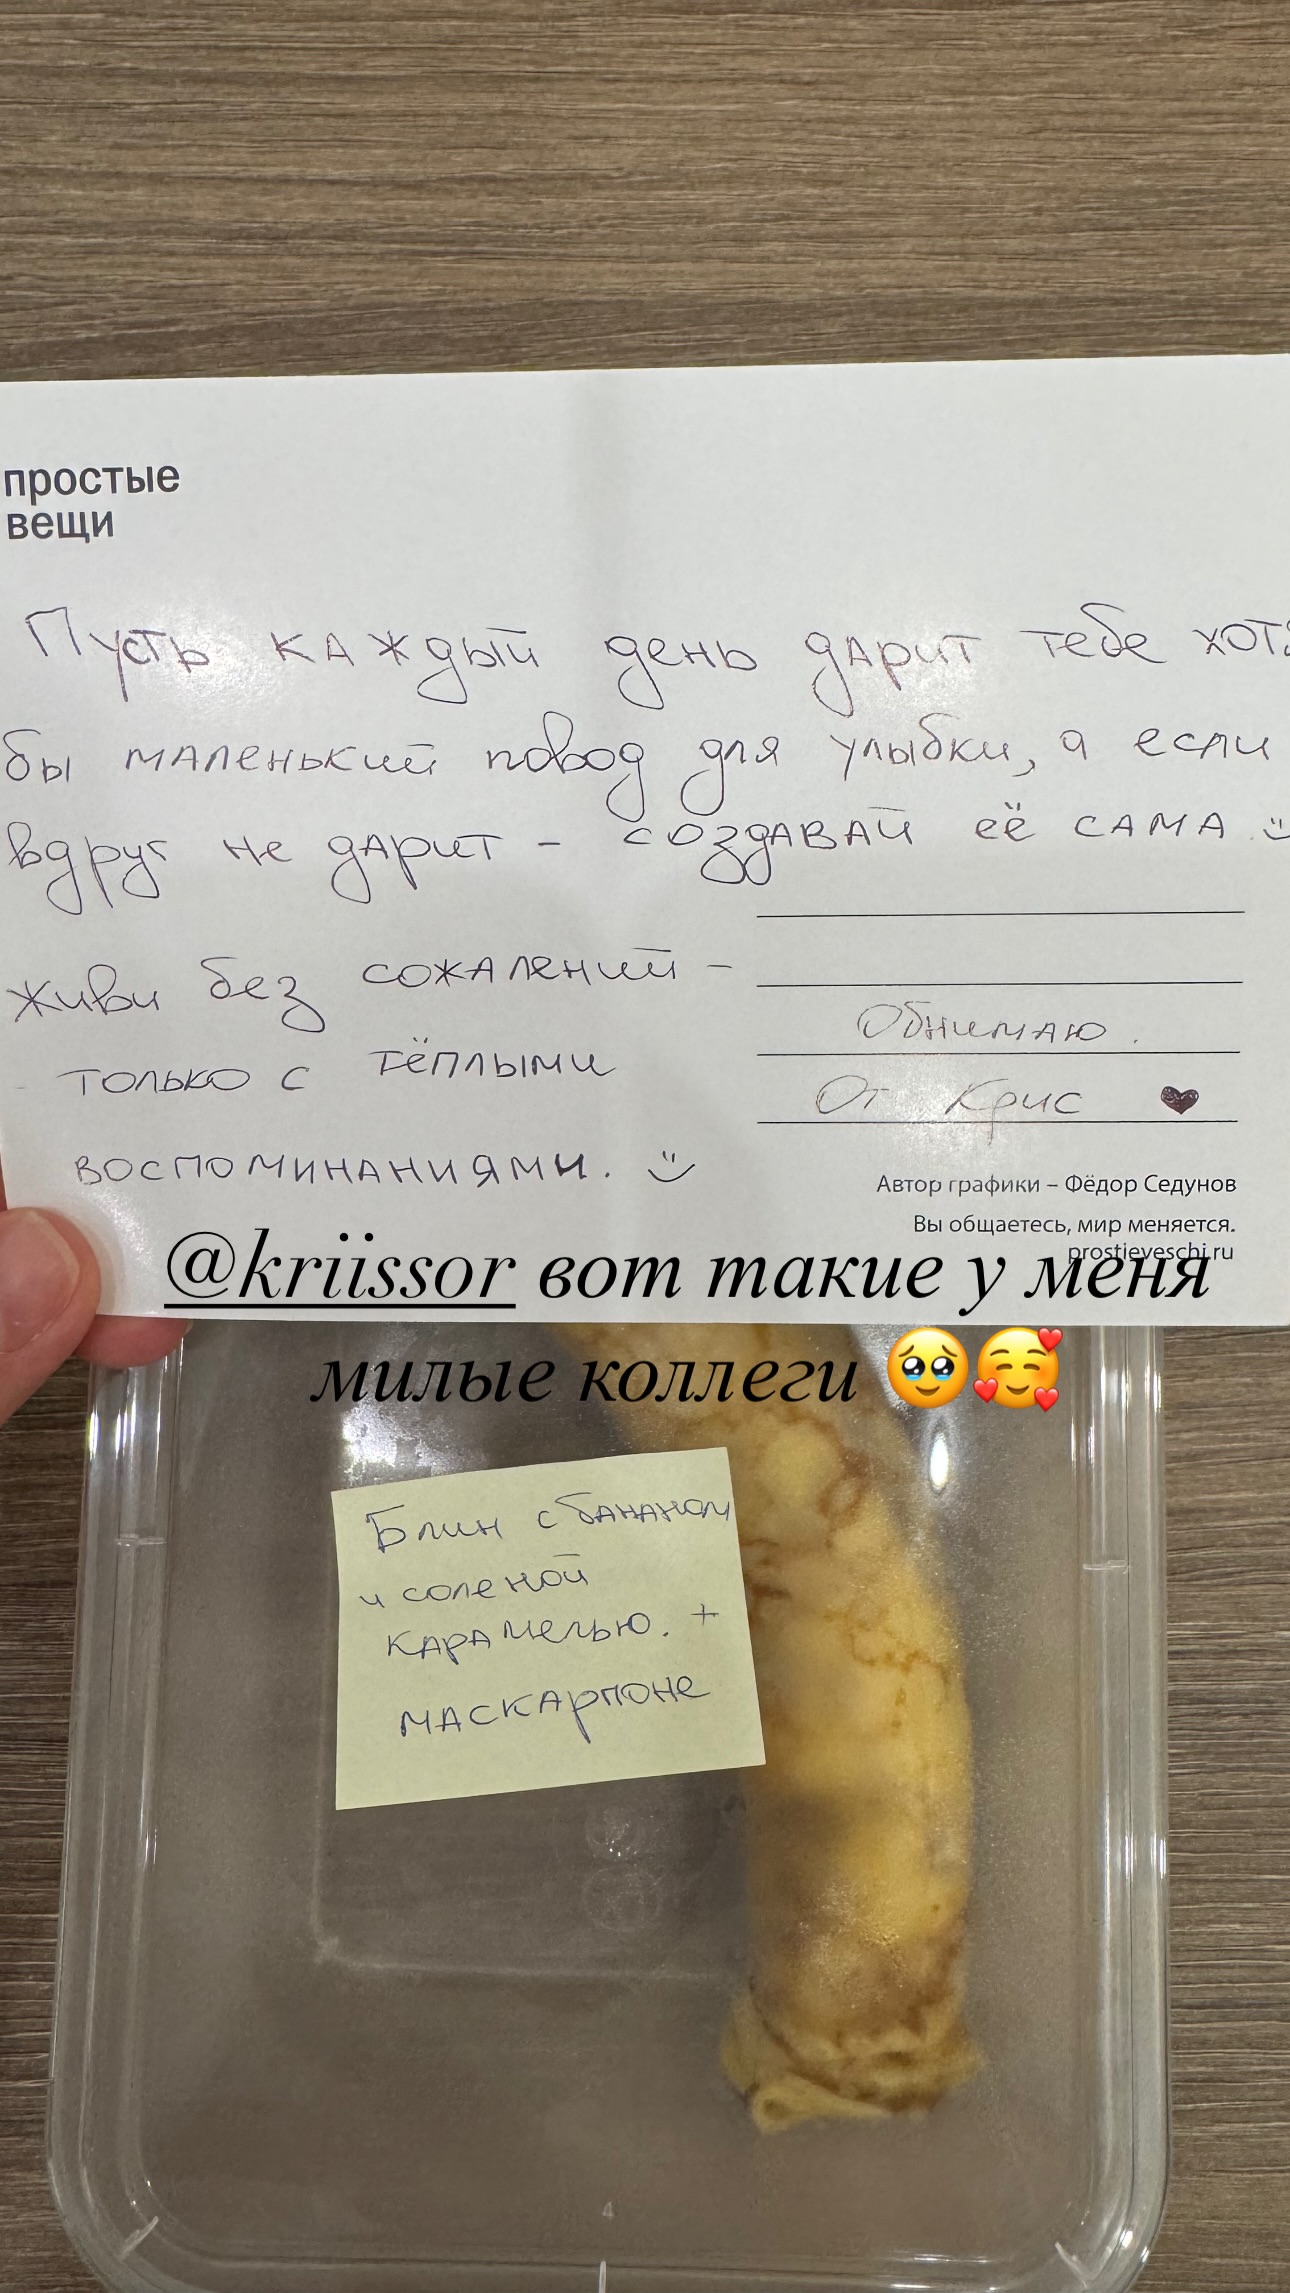 простые
вещи
Пусть каждый день дарит тебе хотя
бы маленький повод для улыбки, а если
вдруг не дарит - создавай её сама
живи без сожалений -
только с тёплыми
воспоминаниями.
Обнимаю.
От Крис
Автор графики – Фёдор Седунов
Вы общаетесь, мир меняется.
prostieveschi.ru
@kriissor вот такие у меня
милые коллеги 🥹🥰
Блин с бананом
и соленой
карамелью. +
маскарпоне